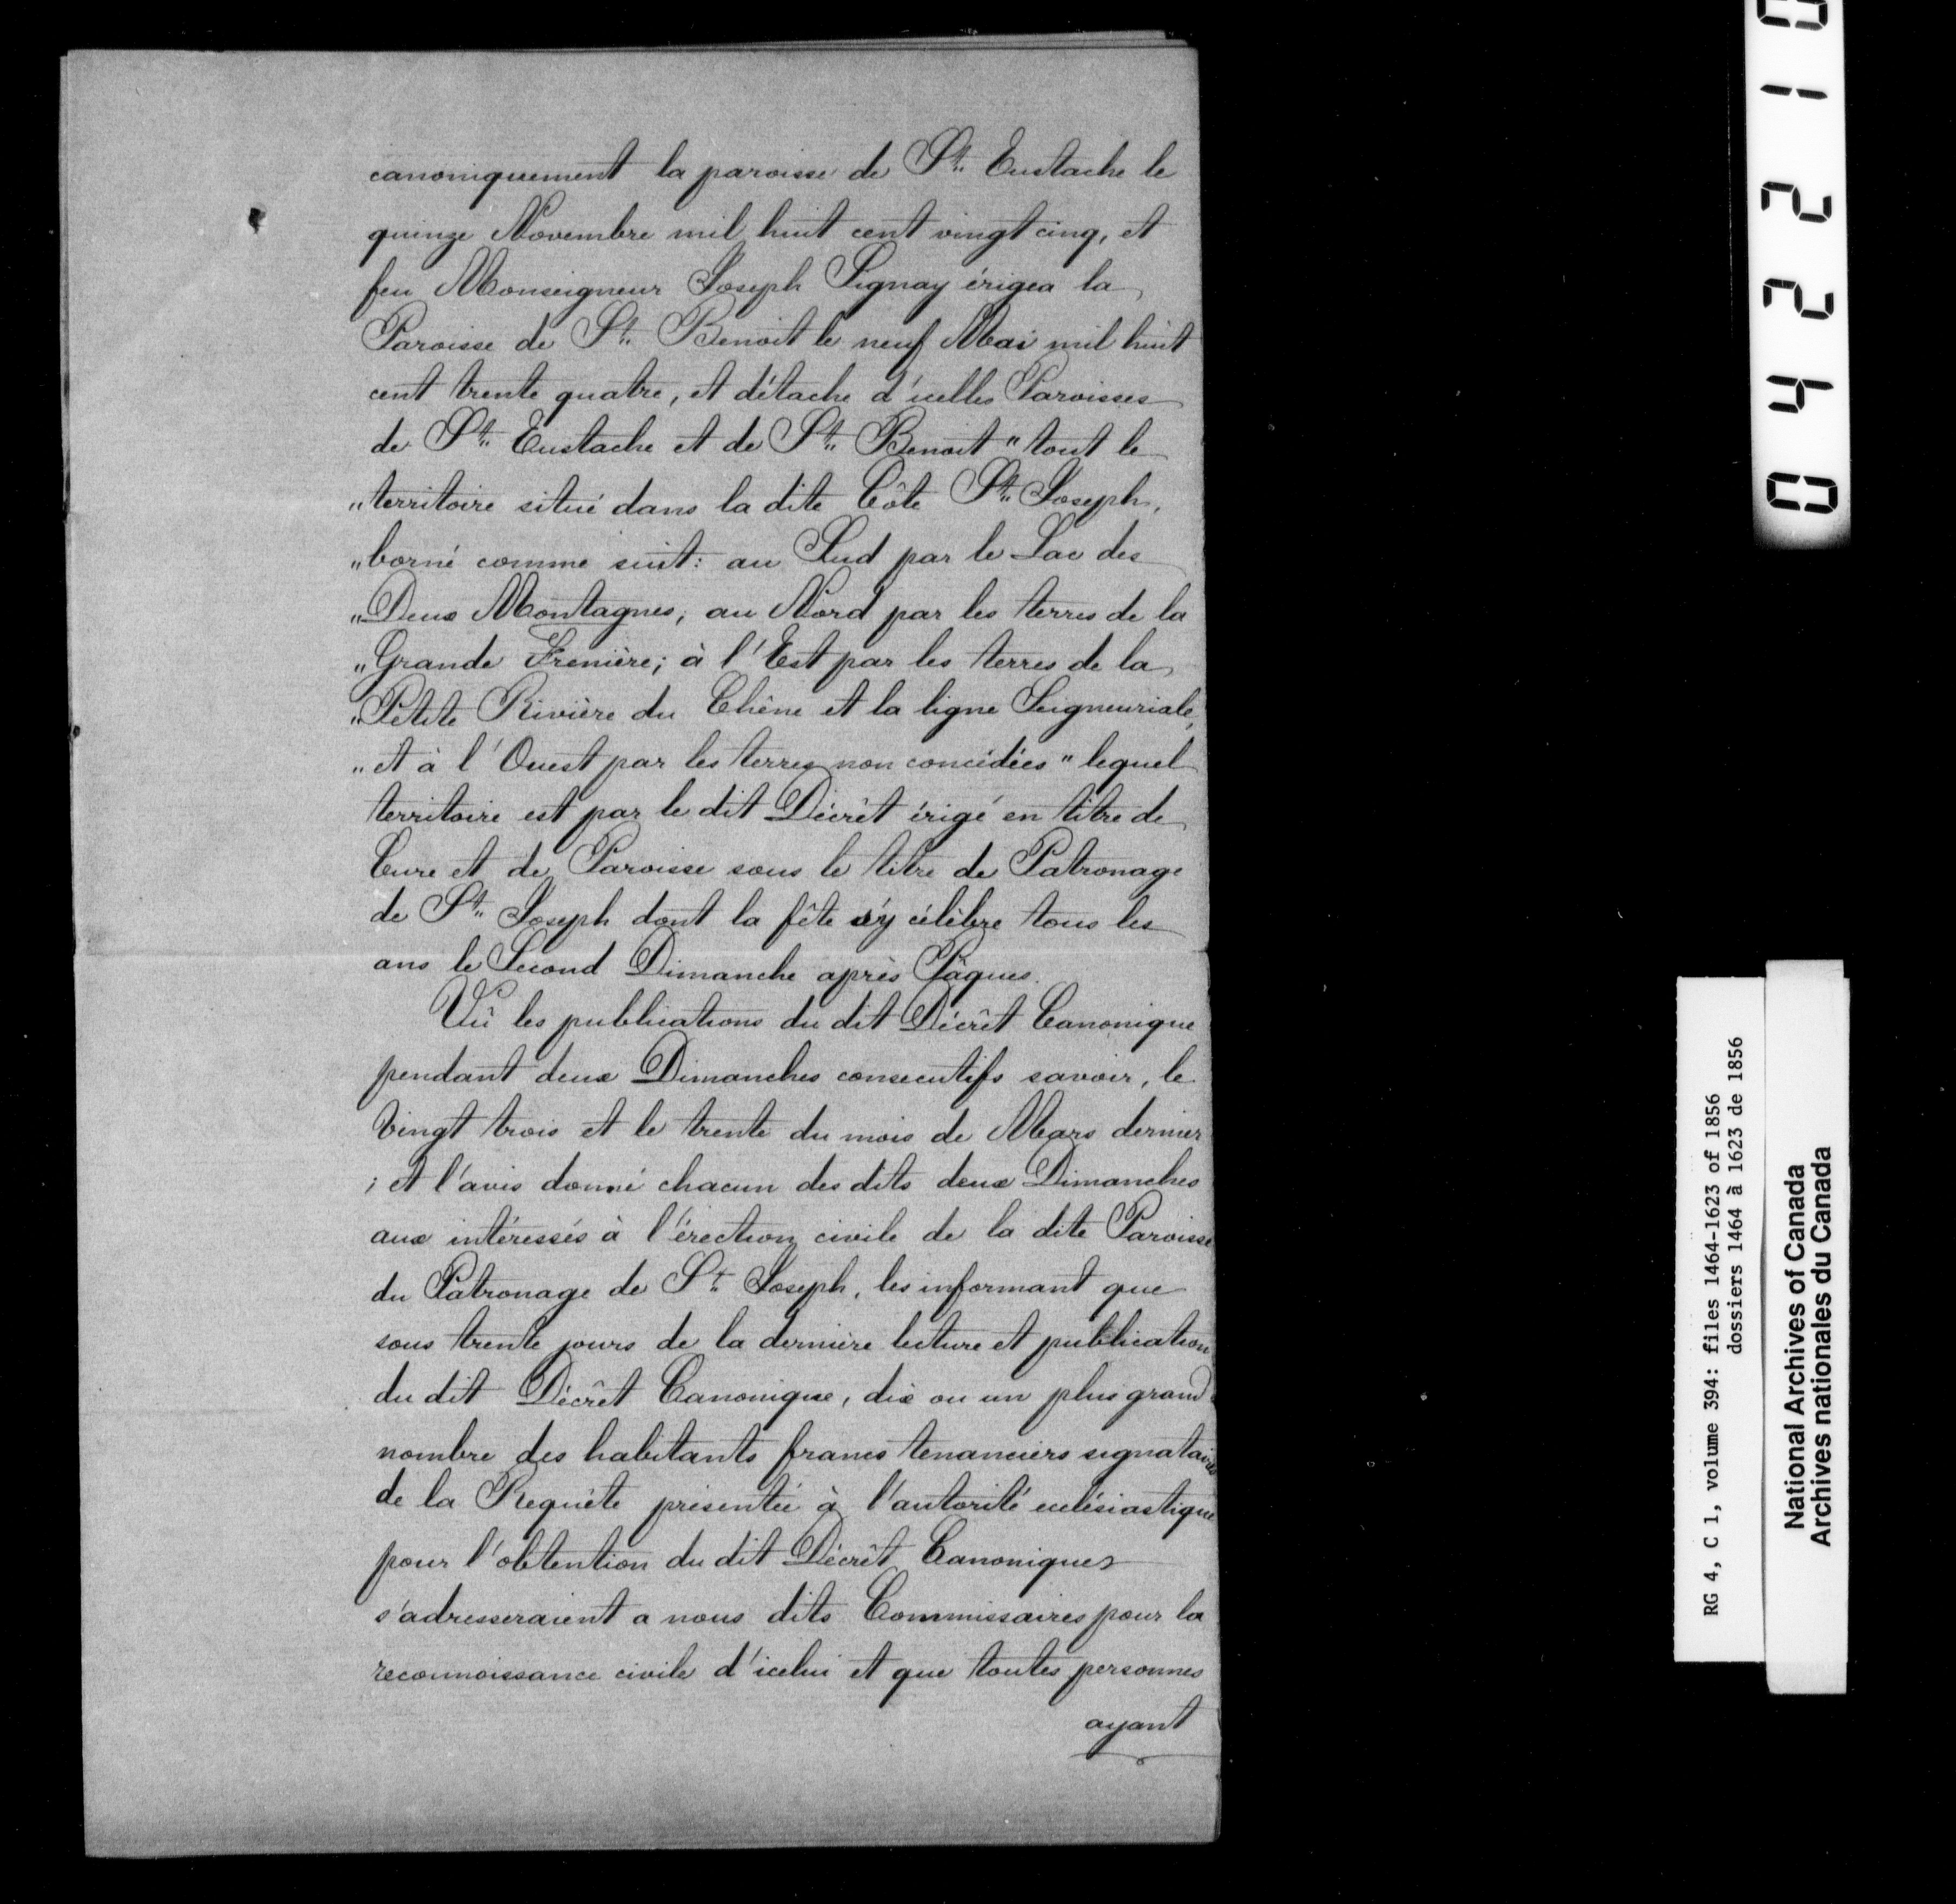 canoniquement la paroisse de St. Eustache le
quinze Novembre mil huit cent vingt cinq, et
feu Monseigneur Joseph Signay érigea la
Paroisse de St. Benoit le neuf Mai mil huit
cent trente quatre, et détache d'icelles Paroisses
de St. Eustache et de St. Benoit " tout le
" territoire situé dans la dite Côte St. Joseph,
" borné comme suit: au Sud par le Lac des
" Deux Montagnes, au Nord par les terres de la
" Grande Frenière; à l'Est par les terres de la
" Petite Rivière du Chêne et la ligne Seigneuriale,
" et à l'Ouest par les terres non concédées " lequel
territoire est par le dit Décrêt érigé en titre de
Cure et de Paroisse sous le titre de Patronage
de St. Joseph dont la fête s'y célèbre tous les
ans le Second Dimanche après Pâques.
Vû les publications du dit Décrêt Canonique
pendant deux Dimanches consecutifs savoir, le
Vingt trois et le trente du mois de Mars dernier
; et l'avis donné chacun des dits deux Dimanches
aux intéressés à l'érection civile de la dite Paroisse
du Patronage de St. Joseph, les informant que
sous trente jours de la dernière lecture et publication
du dit Décrêt Canonique, dix ou un plus grand
nombre des habitants francs tenanciers signataires
de la Requête présentée à l'autorité eclésiastique
pour l'obtention du dit Décrêt Canonique
s'adresseraient a nous dits Commissaires pour la
reconnoissance civile d'icelui et que toutes personnes
ayant
0 4 2 2 1 0
RG 4, C 1, volume 394: files 1464-1623 of 1856
dossiers 1464 à 1623 de 1856
National Archives of Canada
Archives nationales du Canada